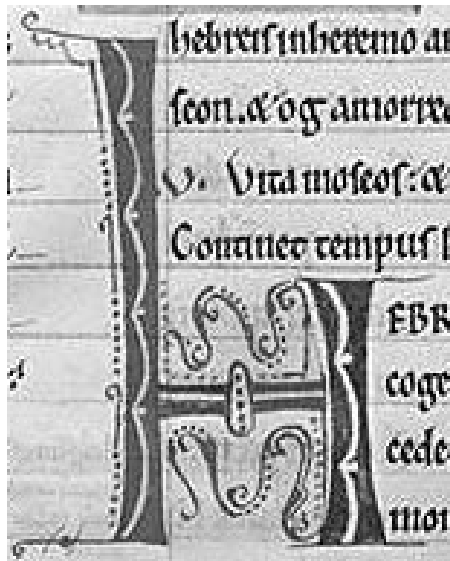 hebreis inheremo
seon. & og amorrea
V. Vita moseos: &
Continet tempus
H EBR
coge
cede
mon